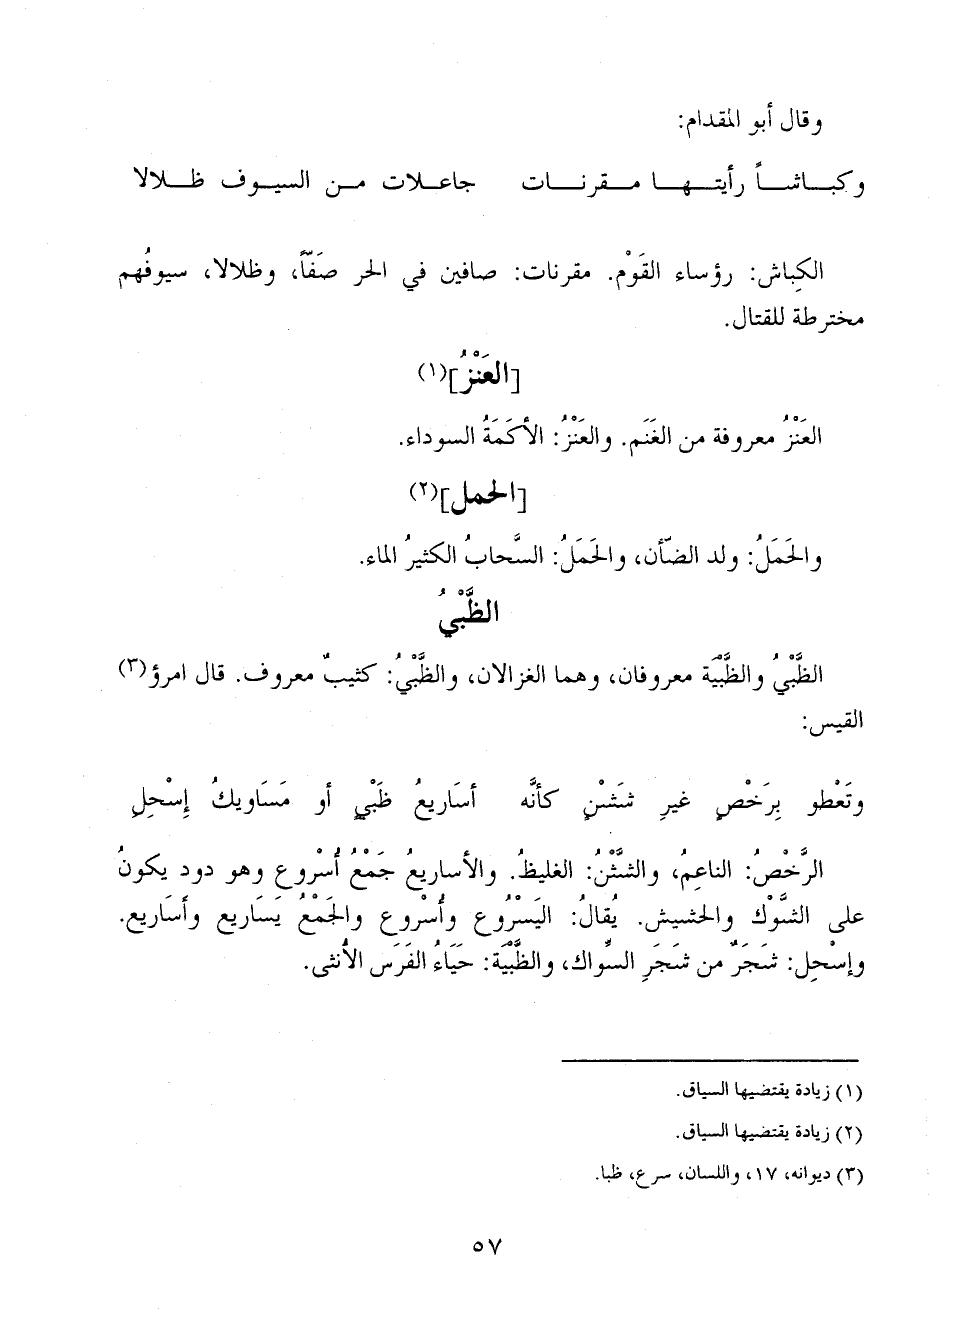 وقال أبو المقدام:
وكباشاً رأيتها مقرنات جاعلات من السيوف ظلالا
الكِباش: رؤساء القَوْمُ. مقرنات: صافين في الحر صَفّاً، وظلالا، سيوفُهم
مخترطة للقتال.
[العَنْزُ](١)
العَنْزُ معروفة من الغَنَم. والعَنْزُ: الأكَمَةُ السوداء.
[الحمل](٢)
والحَمَلُ: ولد الضّأن، والحَمَلُ: السَّحابُ الكثيرُ الماء.
الظَّبْيُ
الظَّبْيُ والظَّبْيَة معروفان، وهما الغزالان، والظَّبْيُ: كثيبٌ معروف. قال امرؤ(٣)
القيس:
وتَعْطو بِرَخْصٍ غيرِ شَثْنٍ كأنَّه أسَاريعُ ظَبْيٍ أو مَسَاويكُ إِسْحِلِ
الرَّخْصُ: الناعِمُ، والشَّثْنُ: الغليظُ. والأساريعُ جَمْعُ أُسْروع وهو دود يكونُ
على الشَّوْك والحشيش. يُقالُ: اليَسْرُوع وأُسْروع والجَمْعُ يَسَاريع وأسَاريع.
وإسْحِل: شَجَرٌ من شَجَرِ السِّواك، والظَّبْيَة: حَيَاءُ الفَرَس الأُنثى.
(١) زيادة يقتضيها السياق.
(٢) زيادة يقتضيها السياق.
(٣) ديوانه، ١٧، واللسان، سرع، ظبا.
٥٧